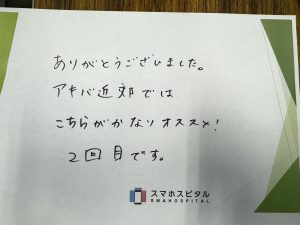 ありがとうございました。
アキバ近郊では
こちらがかなりオススメ!
2回目です。
スマホスピタル
SMAHOSPITAL